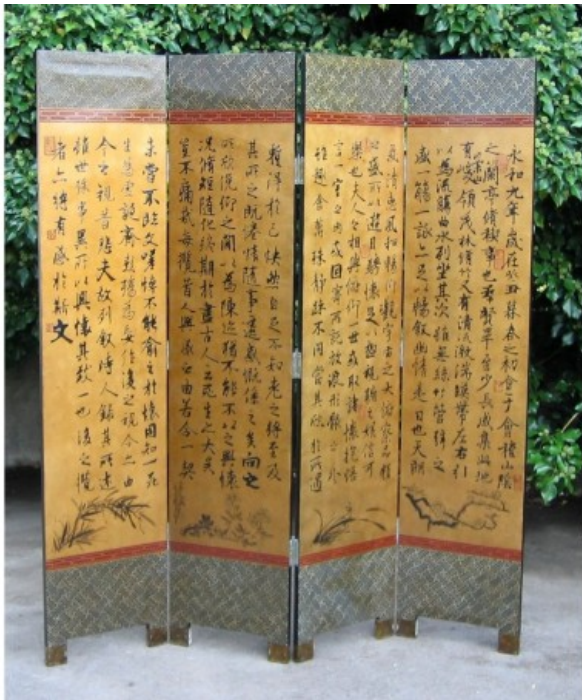 永和九年歲在癸丑暮春之初會于會稽山陰
之蘭亭脩稧事也羣賢畢至少長咸集此地
有崇山峻領茂林脩竹又有清流激湍暎帶左右引
以為流觴曲水列坐其次雖無絲竹管弦之
盛一觴一詠亦足以暢敘幽情是日也天朗
氣清惠風和暢仰觀宇宙之大俯察品類
之盛所以遊目騁懷足以極視聽之娛信可
樂也夫人之相與俯仰一世或取諸懷抱悟
言一室之內或因寄所託放浪形骸之外
雖趣舍萬殊靜躁不同當其欣於所遇
暫得於己怏然自足不知老之將至及
其所之既惓情隨事遷感慨係之矣向之
所欣俛仰之間以為陳迹猶不能不以之興懷
況脩短隨化終期於盡古人云死生亦大矣
豈不痛哉每攬昔人興感之由若合一契
未嘗不臨文嗟悼不能喻之於懷固知一死
生為虛誕齊彭殤為妄作後之視今亦由
今之視昔悲夫故列敘時人錄其所述
雖世殊事異所以興懷其致一也後之攬
者亦將有感於斯文